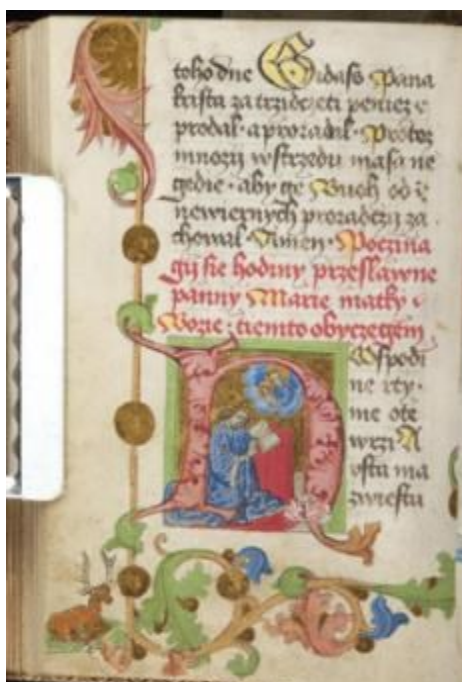 toho dne Gidass Pana
krista za trzidczeti peniez e
prodal · a prozradil · Protoz
mnozy w strzedu masa ne
gedie · aby ge Buoh od
newiernych prozradczij za
chowal · Amen · Poczina
gij sie hodiny przeslawne
panny Marie matky
Bozie : tiemto obyczegem
Hospodi
ne rty ·
me ote
wrzi A
vsta ma
zwiestu